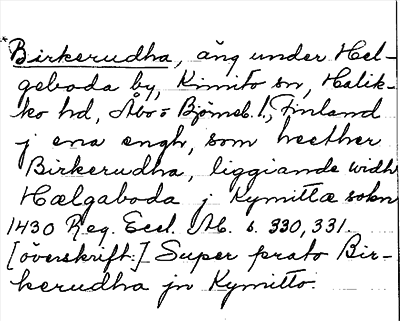 *Birkerudha, äng under Hel-
geboda by, Kimito sn, Halik-
ko hd, Åbo o Björneb. l., Finland
j ena engh, som heether
Birkerudha, liggiande widh
Hælgaboda j Kymittæ sokn
1430 Reg. Eccl. Ab. s. 330, 331.
[överskrift:] Super prato Bir-
kerudha jn Kymitto.